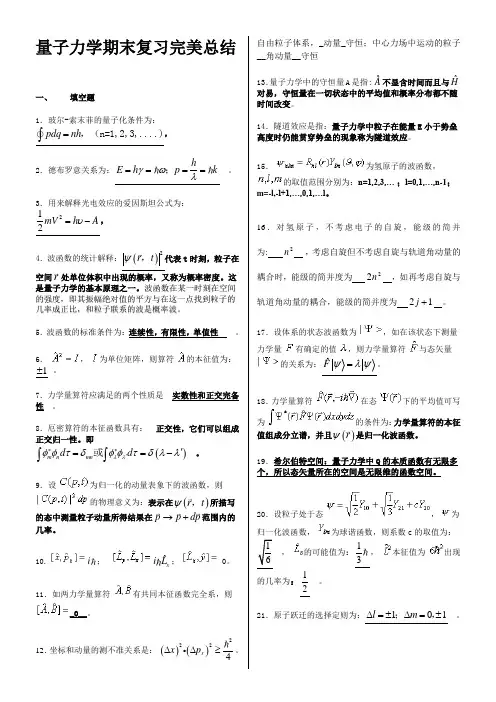 量子力学期末复习完美总结
一、 填空题
1．玻尔-索末菲的量子化条件为：
∮pdq = nh，（n=1,2,3,....），
2．德布罗意关系为：E = hγ = ħω; p = h/λ = ħk 。
3．用来解释光电效应的爱因斯坦公式为：
1/2 mV² = hυ − A，
4．波函数的统计解释：|ψ(r, t)|²代表t时刻，粒子在
空间r处单位体积中出现的概率，又称为概率密度。这
是量子力学的基本原理之一。波函数在某一时刻在空间
的强度，即其振幅绝对值的平方与在这一点找到粒子的
几率成正比，和粒子联系的波是概率波。
5．波函数的标准条件为：连续性，有限性，单值性 。
6． Â² = I，I 为单位矩阵，则算符 Â 的本征值为：
±1 。
7．力学量算符应满足的两个性质是 实数性和正交完备
性 。
8．厄密算符的本征函数具有： 正交性，它们可以组成
正交归一性。即
∫φ*mφn dτ = δmn 或 ∫φ*λφλ′ dτ = δ(λ − λ′) 。
9．设 C(p,t) 为归一化的动量表象下的波函数，则
|C(p,t)|² dp 的物理意义为：表示在ψ(r, t)所描写
的态中测量粒子动量所得结果在 p → p + dp 范围内的
几率。
10. iħ ； ； 0。
11．如两力学量算符 Â,B̂ 有共同本征函数完全系，则
[Â,B̂] = _0__。
12．坐标和动量的测不准关系是： (Δx)²•(Δpx)² ≥ ħ²/4 。
自由粒子体系，_动量_守恒；中心力场中运动的粒子
__角动量__守恒
13．量子力学中的守恒量A是指：Â不显含时间而且与Ĥ
对易，守恒量在一切状态中的平均值和概率分布都不随
时间改变。
14．隧道效应是指：量子力学中粒子在能量E小于势垒
高度时仍能贯穿势垒的现象称为隧道效应。
15． ψnlm = Rnl(r)Ylm(θ,φ) 为氢原子的波函数，
n,l,m 的取值范围分别为：n=1,2,3,… ；l=0,1,…,n-1；
m=-l,-l+1,…,0,1,…l。
16．对氢原子，不考虑电子的自旋，能级的简并
为: n² ，考虑自旋但不考虑自旋与轨道角动量的
耦合时，能级的简并度为 2n² ，如再考虑自旋与
轨道角动量的耦合，能级的简并度为 2j + 1 。
17．设体系的状态波函数为|Ψ>，如在该状态下测量
力学量 F 有确定的值 λ，则力学量算符 F̂ 与态矢量
|Ψ>的关系为：F̂|ψ⟩ = λ|ψ⟩。
18．力学量算符 F̂(r̂,−iħ∇) 在态 下的平均值可写
为 的条件为:力学量算符的本征
值组成分立谱，并且ψ(r)是归一化波函数。
19．希尔伯特空间：量子力学中Q的本质函数有无限多
个，所以态矢量所在的空间是无限维的函数空间。
20．设粒子处于态 ψ = √(1/2) Y10 + √(1/3) Y21 + cY20 ，ψ 为
归一化波函数，Ylm 为球谐函数，则系数c的取值为：
√(1/6) ，L̂z 的可能值为：1/3 ħ ， L̂² 本征值为 6ħ² 出现
的几率为： 1/2 。
21．原子跃迁的选择定则为：Δl = ±1；Δm = 0, ±1 。